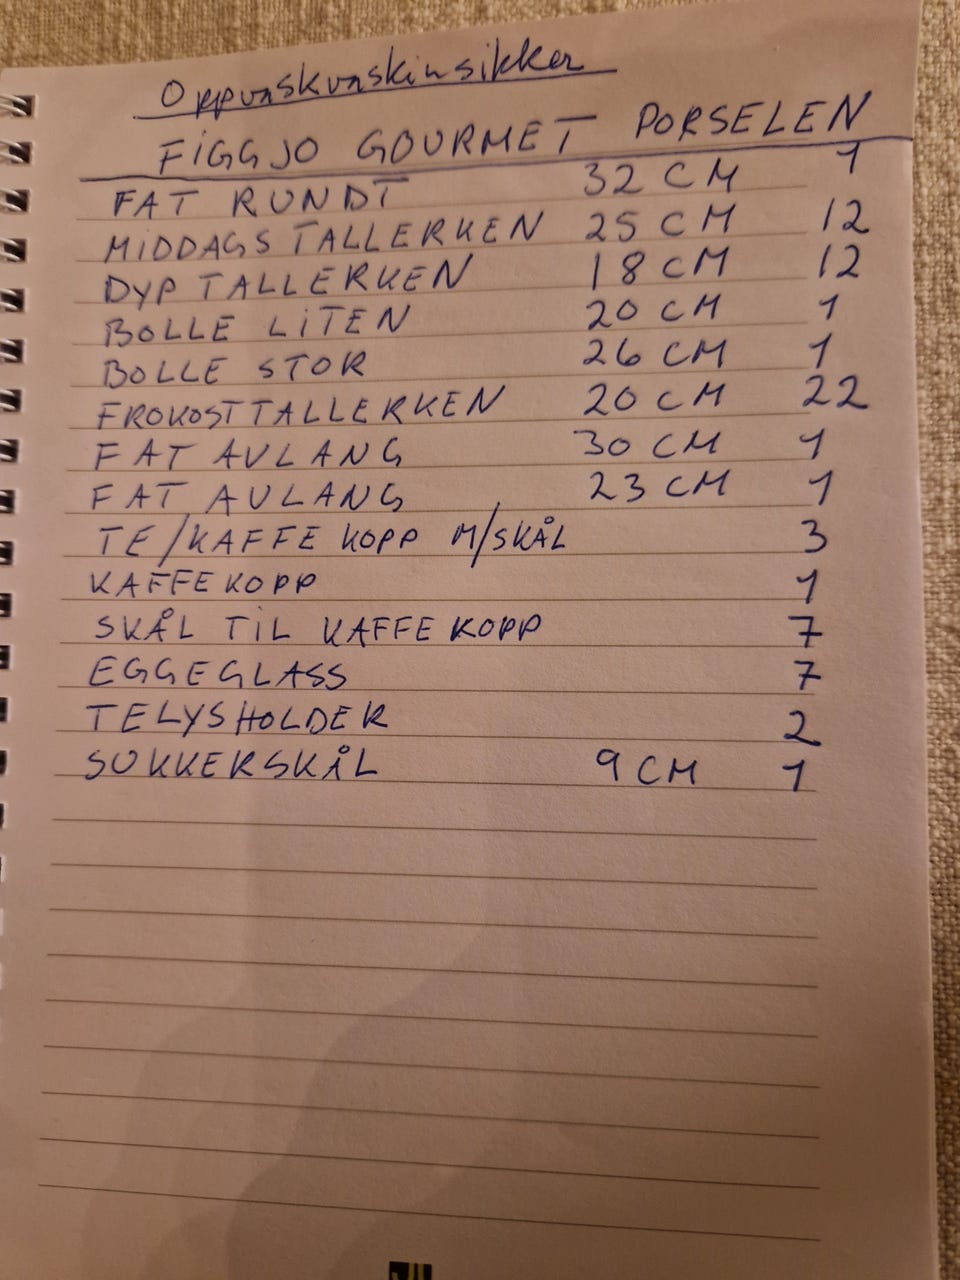 Oppvaskvaskinsikker
FIGGJO GOURMET PORSELEN
FAT RUNDT 32 CM 1
MIDDAGSTALLERKEN 25 CM 12
DYP TALLERKEN 18 CM 12
BOLLE LITEN 20 CM 1
BOLLE STOR 26 CM 1
FROKOSTTALLERKEN 20 CM 22
FAT AVLANG 30 CM 1
FAT AVLANG 23 CM 1
TE/KAFFE KOPP M/SKÅL 3
KAFFEKOPP 1
SKÅL TIL KAFFEKOPP 7
EGGEGLASS 7
TELYSHOLDER 2
SUKKERSKÅL 9 CM 1